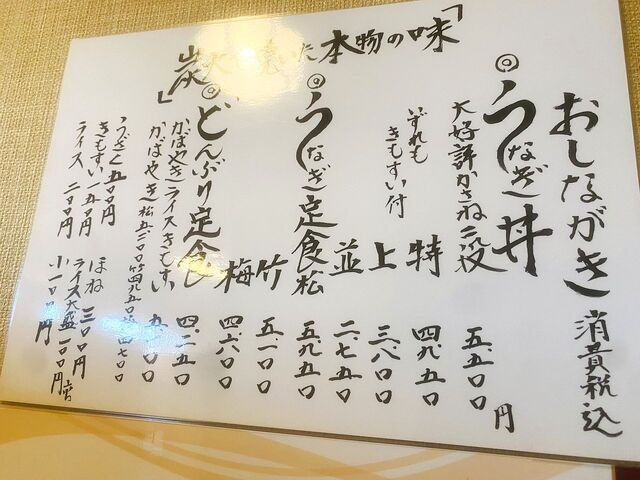 おしながき 消費税込
◎うなぎ丼
大好評かさね二段 五、五〇〇円
いずれもきもすい付
特 四、九五〇
上 三、八〇〇
並 二、七五〇
◎うなぎ定食
松 五、九五〇
竹 五、一〇〇
梅 四、六〇〇
◎どんぶり定食 四、二五〇
かばやきライスきもすい
かばやき 松五二〇〇 竹四九五〇
うざく 五〇〇円
きもすい 一五〇円
ライス 二〇〇円
ほね 三〇〇円
ライス大盛 一〇〇円
小 一〇〇円
「炭火 本物の味」